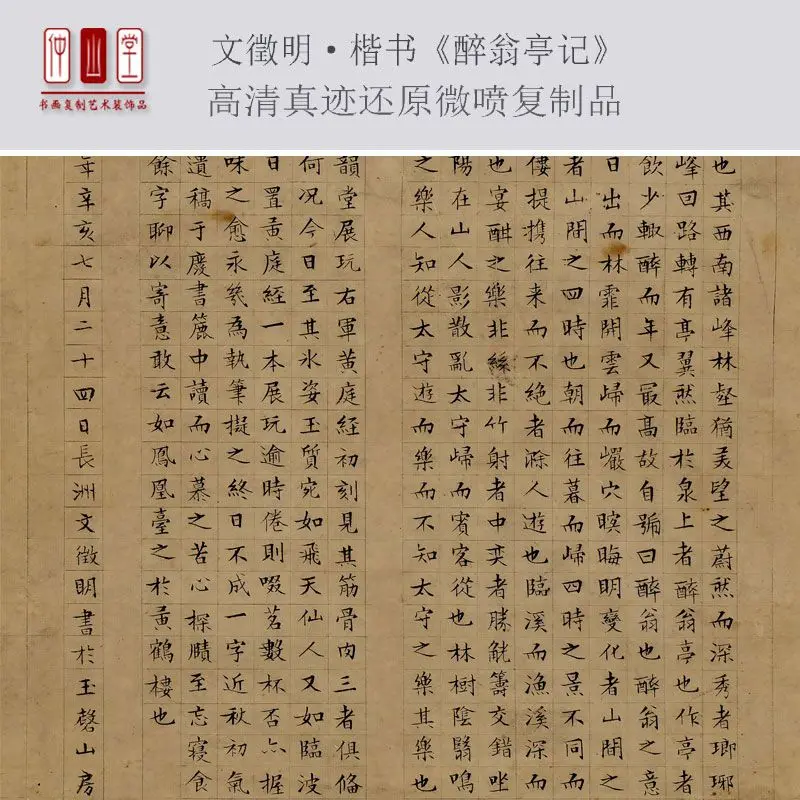 仲山堂
书画复制艺术装饰品
文徵明·楷书《醉翁亭记》
高清真迹还原微喷复制品
也其西南諸峰林壑猶美望之蔚然而深秀者瑯琊
峰回路轉有亭翼然臨於泉上者醉翁亭也作亭者
飲少輙醉而年又最髙故自號曰醉翁也醉翁之意
日出而林霏開雲歸而巖穴暝晦明變化者山間之
者山間之四時也朝而往暮而歸四時之景不同而
僂提攜往来而不絶者滁人遊也臨溪而漁溪深而
也宴酣之樂非絲非竹射者中奕者勝觥籌交錯坐
陽在山人影散亂太守歸而賓客從也林樹陰翳鳴
之樂人知從太守遊而樂而不知太守之樂其樂也
韻堂展玩右軍黄庭經初刻見其筋骨肉三者俱偹
何况今日至其氷姿玉質宛如飛天仙人又如臨波
日置黄庭經一本展玩逾時倦則啜茗數杯否亦握
味之愈永幾為執筆擬之終日不成一字近秋初氣
遺稿于慶書簏中讀而心慕之苦心探賾至忘寢食
餘字聊以寄意敢云如鳳凰臺之於黄鶴樓也
年辛亥七月二十四日長洲文徵明書於玉磬山房